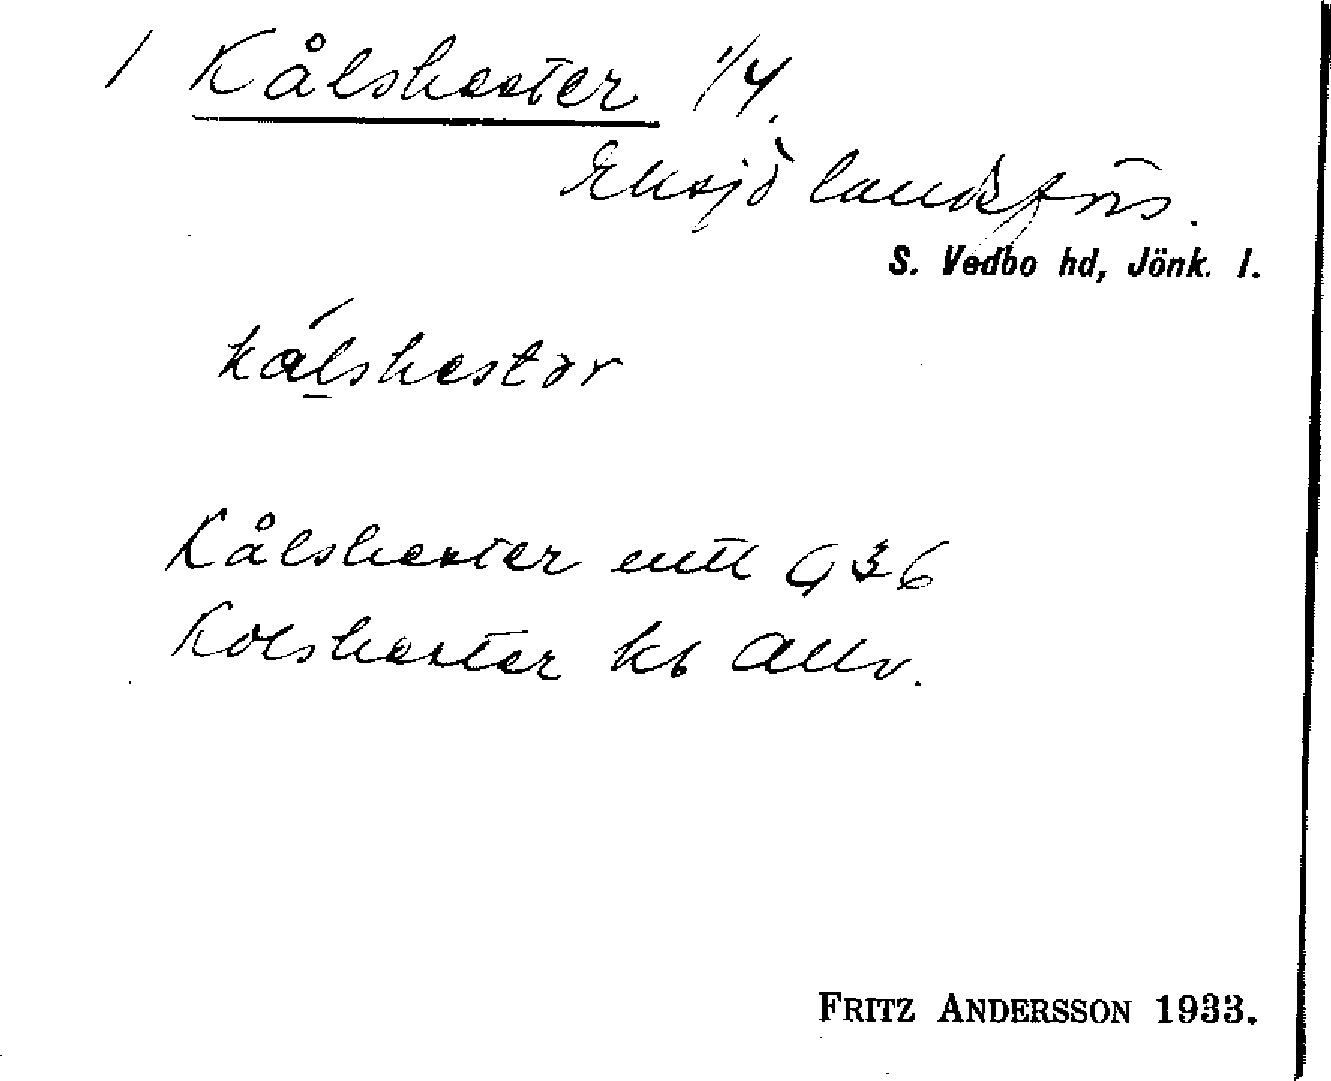 1 Kålshester 1/4.
Eksjö landsförs.
S. Vedbo hd, Jönk. l.
kålshestər
Kålshester mtl G36
Kolshester kb Allv.
FRITZ ANDERSSON 1933.